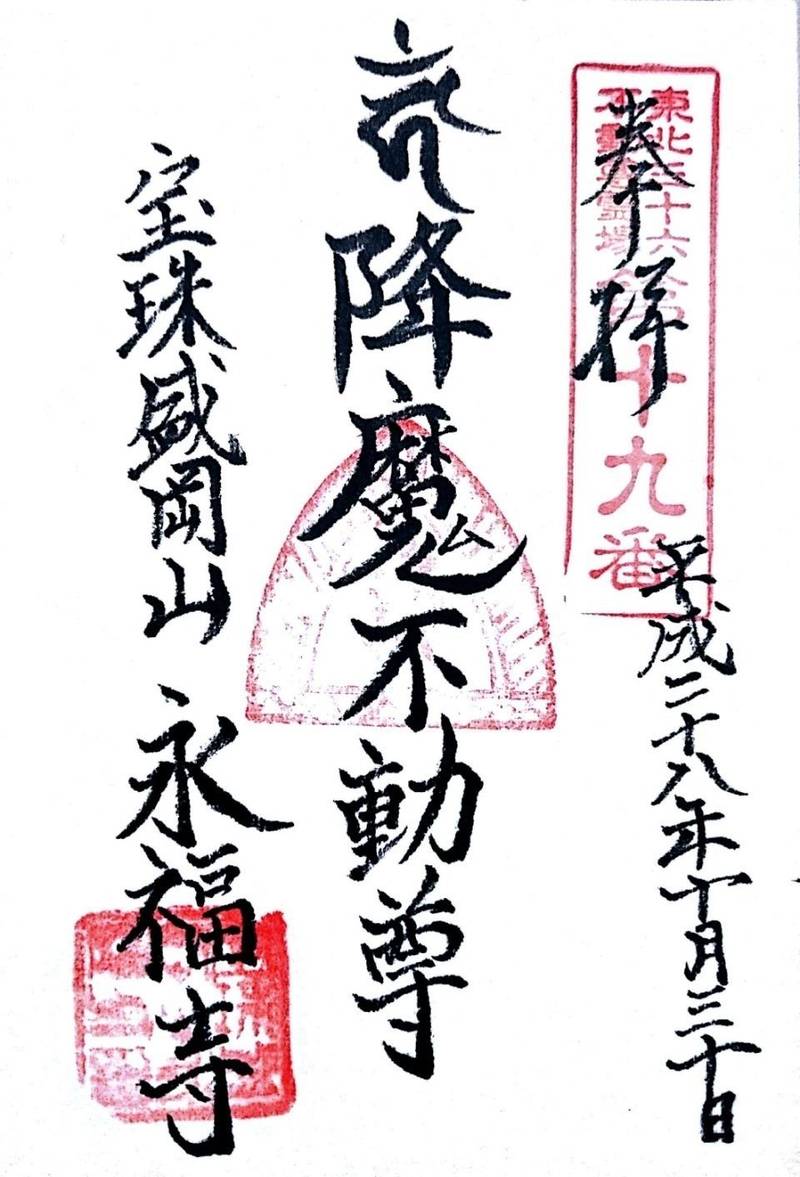 東北三十六
不動尊霊場
第十九番
奉拝
平成二十八年十月三十日
降魔不動尊
宝珠盛岡山 永福寺